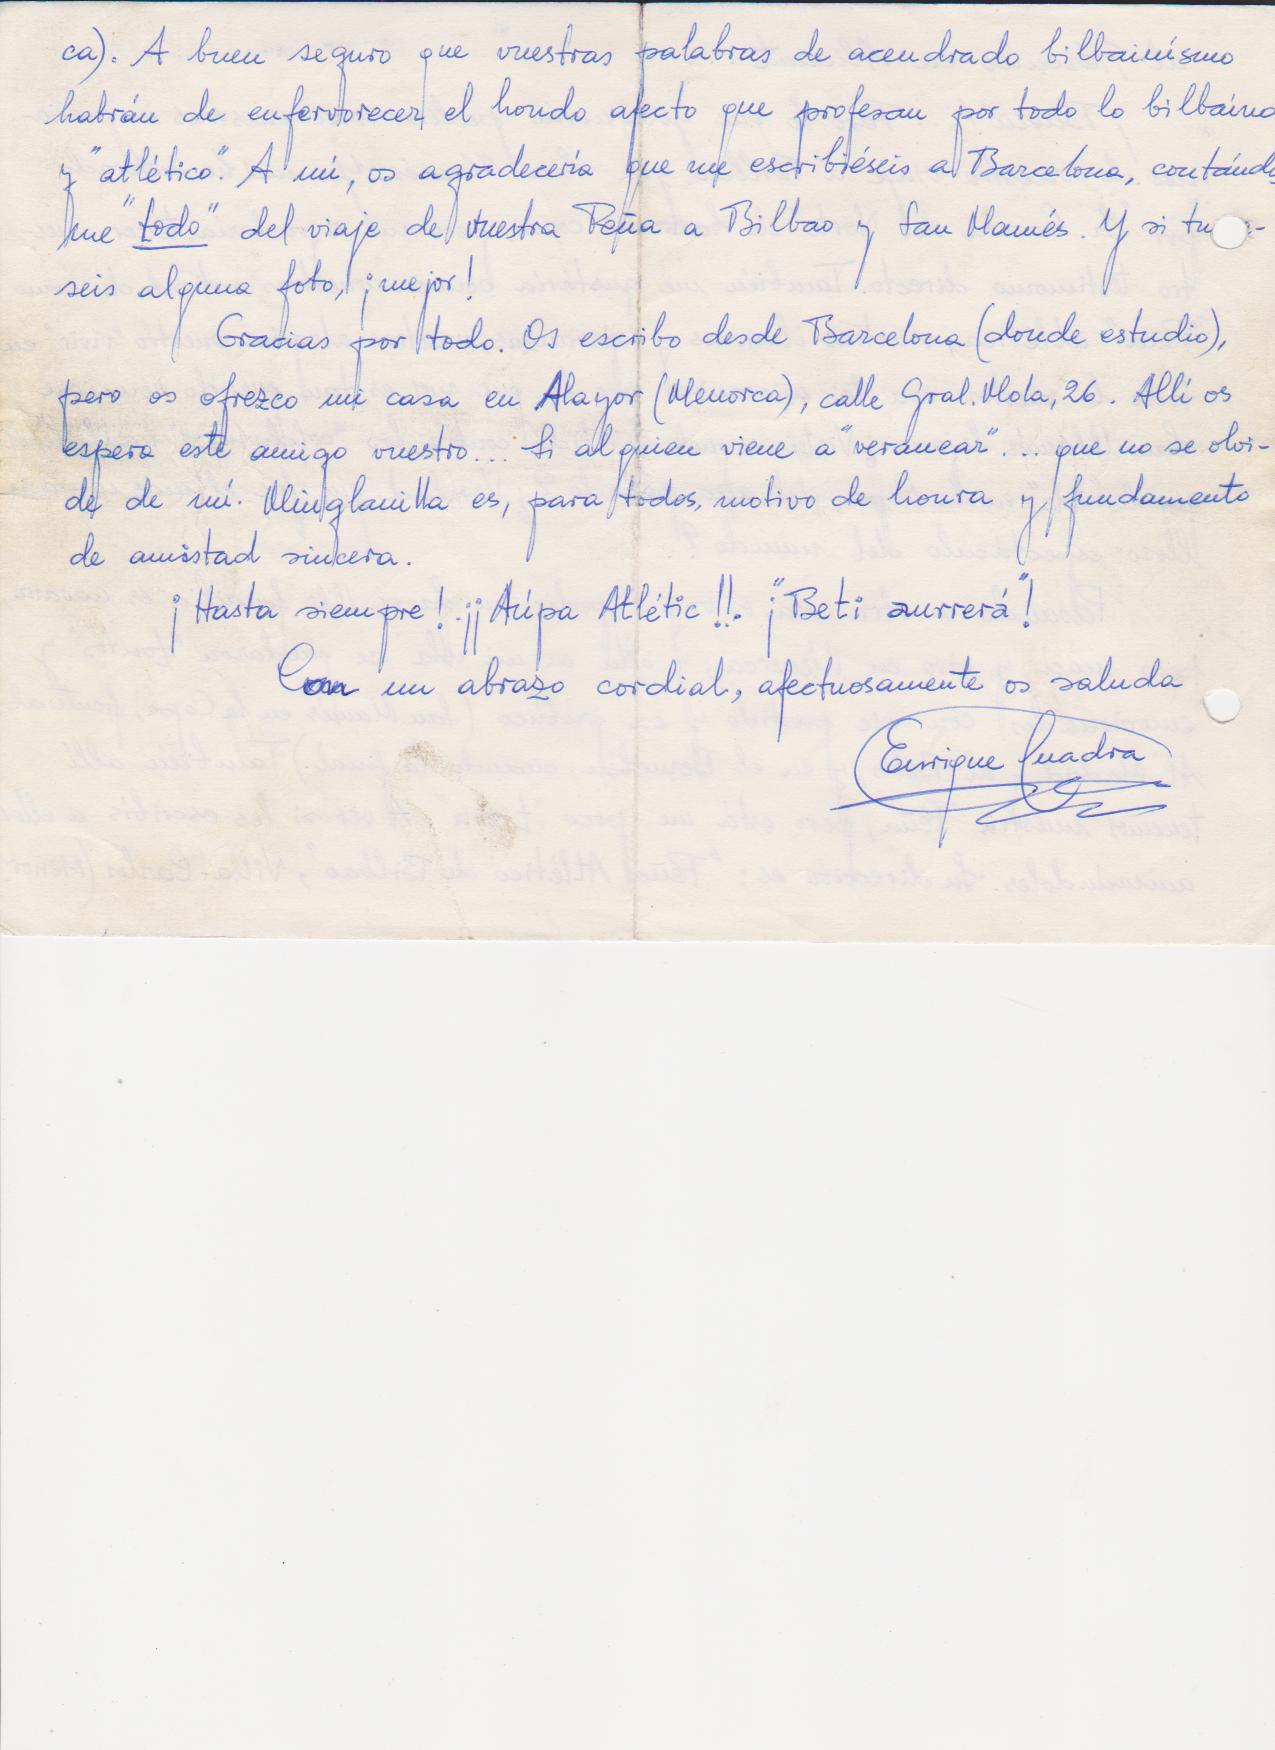 ca). A buen seguro que vuestras palabras de acendrado bilbainísmo
habrán de enfervorecer el hondo afecto que profesan por todo lo bilbaíno
y "atlético". A mí, os agradecería que me escribiéseis a Barcelona, contándo
me "todo" del viaje de vuestra Peña a Bilbao y San Mamés. Y si tu
seis alguna foto, ¡mejor!
Gracias por todo. Os escribo desde Barcelona (donde estudio),
pero os ofrezco mi casa en Alayor (Menorca), calle Gral. Mola, 26. Allí os
espera este amigo vuestro... Si alguien viene a "veranear"... que no se olvi-
de de mí. Minglanilla es, para todos, motivo de honra y fundamento
de amistad sincera.
¡Hasta siempre! ¡¡Aúpa Atlétic!!. ¡"Beti aurrerá"!
Con un abrazo cordial, afectuosamente os saluda
Enrique Cuadra